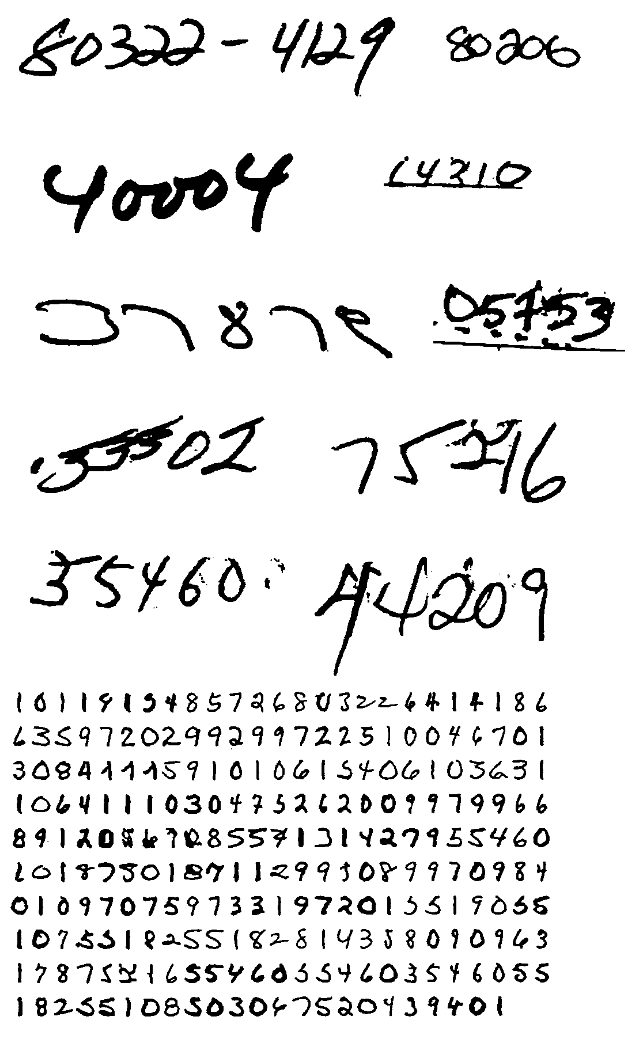 80322-4129 80206
40004 14310
37878 05753
.33502 75216
35460 44209
1011915485726803226414186
6359720299299722510046701
3084111591010615406103631
1064111030475262009979966
8912086708557131427955460
1018730187112993089970984
0109707597331972015519055
1075518255182814358090963
1787521655460354603546055
18255108503047520439401